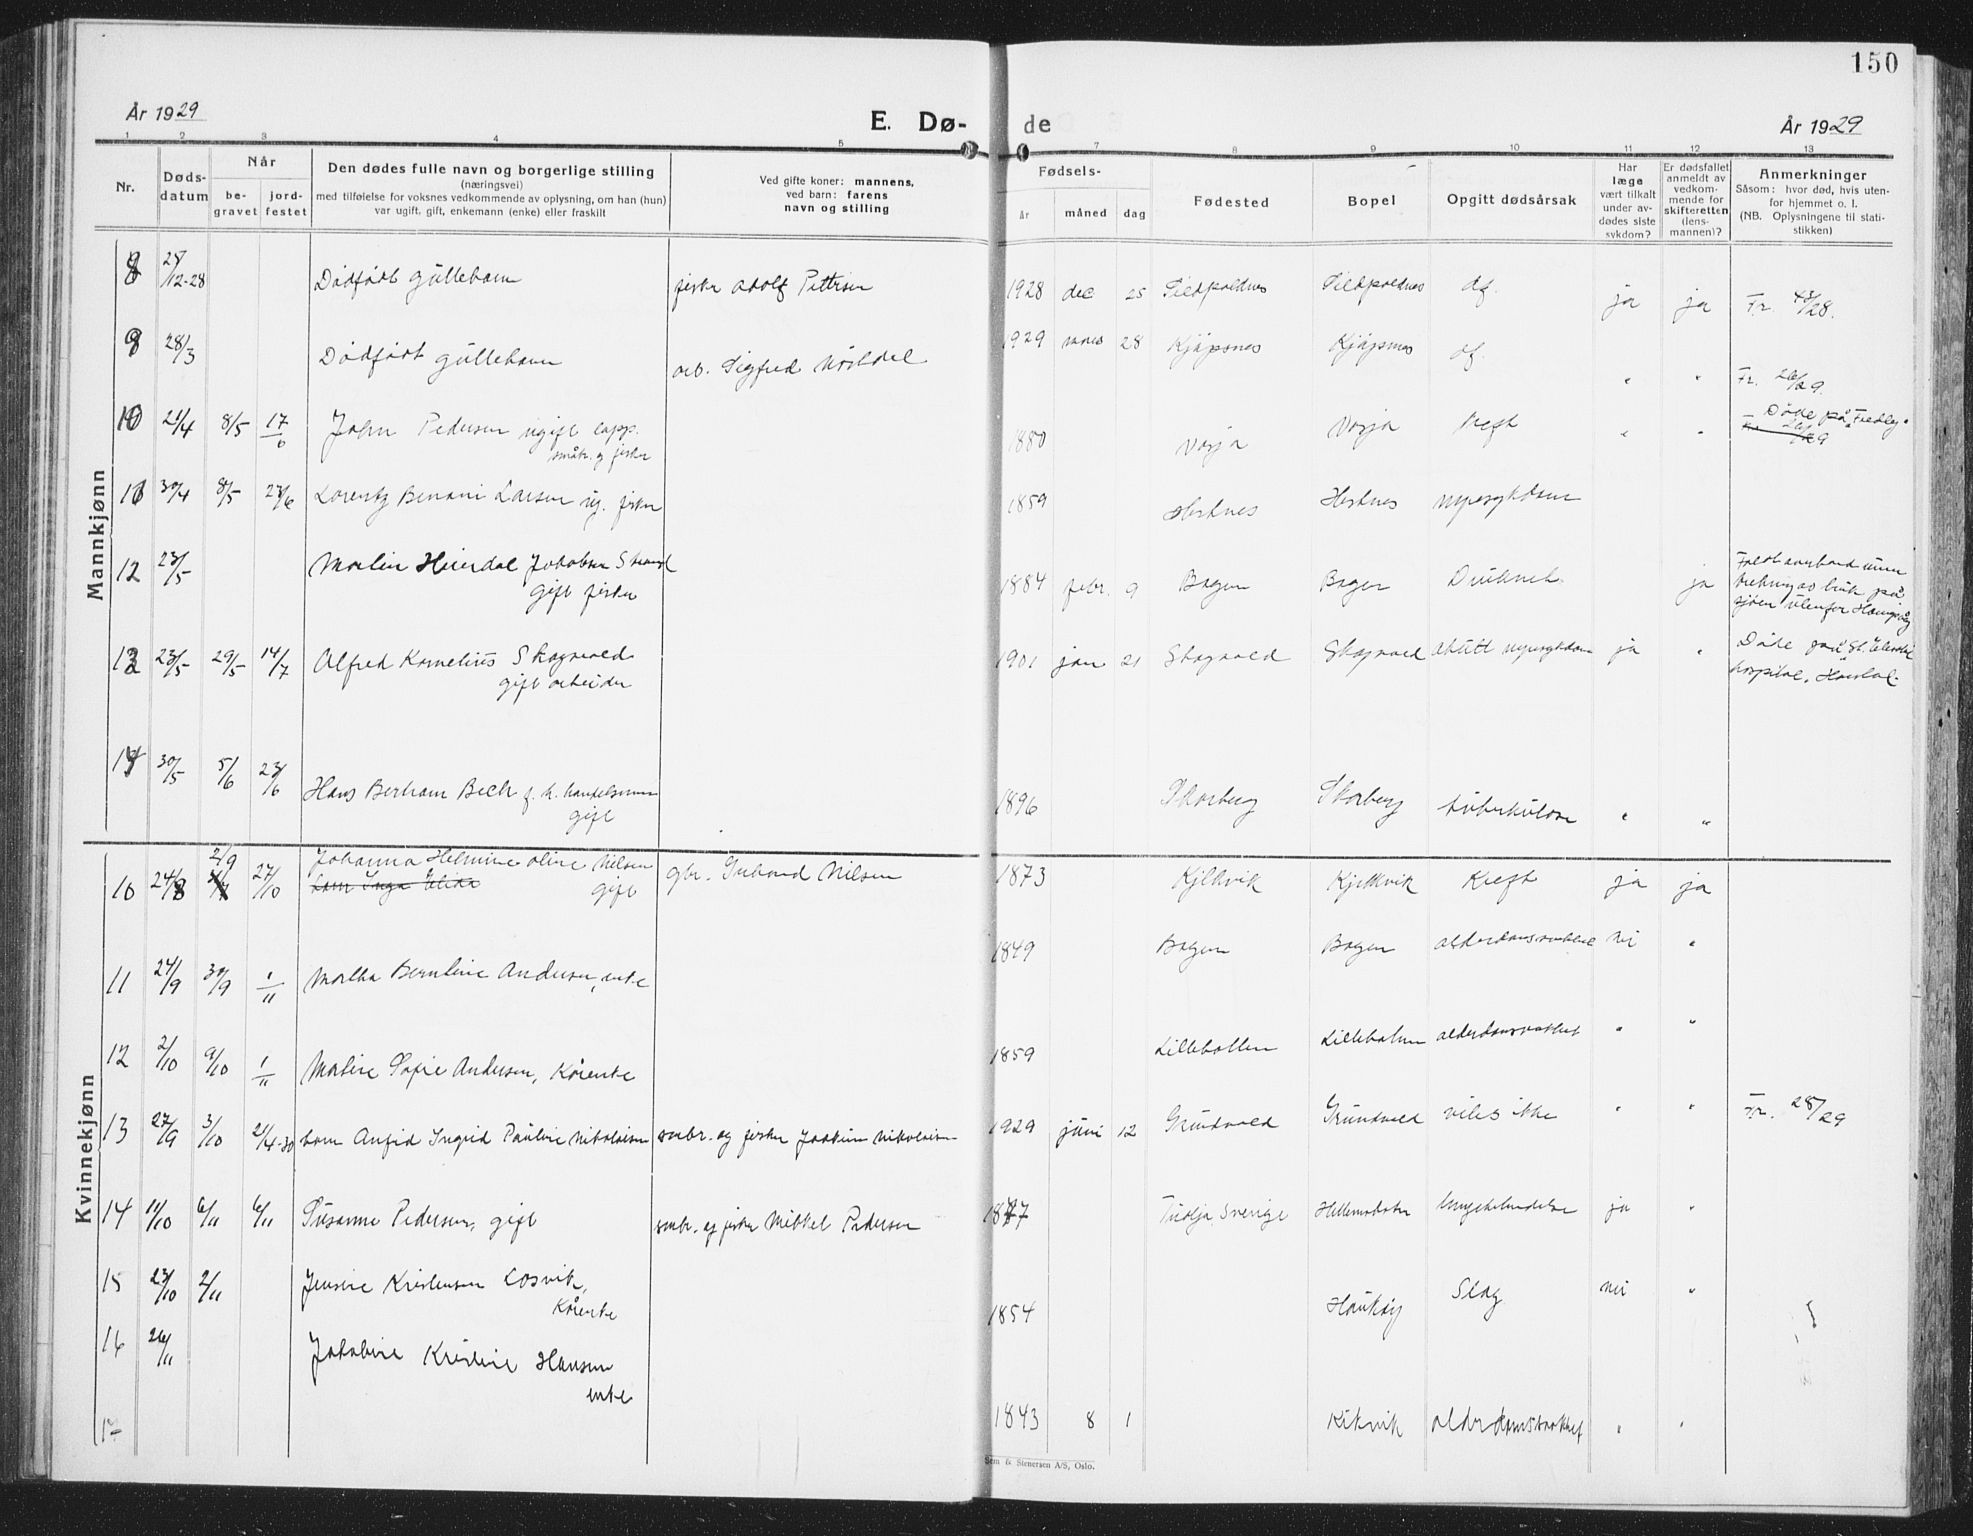 150
År 1929
E. Dø-
de
År 1929
1 2 3 4 5 7 8 9 10 11 12 13
Nr.
Døds-
datum
Når
be-
gravet
jord-
festet
Den dødes fulle navn og borgerlige stilling
(næringsvei)
med tilføielse for voksnes vedkommende av oplysning, om han (hun)
var ugift, gift, enkemann (enke) eller fraskilt
Ved gifte koner: mannens,
ved barn: farens
navn og stilling
Fødsels-
år
måned
dag
Fødested
Bopel
Opgitt dødsårsak
Har
læge
vært tilkalt
under av-
dødes siste
sykdom?
Er dødsfallet
anmeldt av
vedkom-
mende for
skifteretten
(lens-
mannen)?
Anmerkninger
Såsom: hvor død, hvis uten-
for hjemmet o. l.
(NB. Oplysningene til stati-
stikken)
Mannkjønn
8 25/12-28 Dødfødt guttebarn fisker Adolf Pettersen 1928 dec 25 df. ja ja Fr. 43/28.
9 28/3 Dødfødt guttebarn arb. Sigfred 1929 mars 28 Kjøpsnes Kjøpsnes df. " " Fr. 26/29.
10 21/4 8/5 17/6 John Pedersen ugift lapp. 1880 Vargja Vargja Kreft " " Døde på
småbr. og fisker
11 30/4 8/5 23/6 Lorentz Benoni Larsen ug. fisker 1859 Hestnes Hestnes nyresykdom
12 23/5 Martin Heierdal Jakobsen Strand 1884 febr. 9 Bogen Bogen Druknet. ja
gift fisker
Falt overbord under
sjøen utenfor
13 23/5 29/5 14/7 Alfred Kornelius Skogvold 1901 jan 21 Skogvold Skogvold akutt nyresykdom ja " Døde på St. Elisabet
gift arbeider
hospital, Harstad.
14 30/5 5/6 23/6 Hans Bertram Bech f. h. handelsmann 1896 Skarberg Skarberg tuberkulose " "
gift
Kvinnekjønn
10 24/8 2/9 27/10 Johanna Helmine Oline Nilsen gbr. Nilsen 1873 Kjelkvik Kjelkvik Kreft ja ja
gift
11 24/9 30/9 1/11 Martha Berntine Andersen, enke 1849 Bogen Bogen alderdomssvakhet nei "
12 2/10 9/10 1/11 Martine Sofie Andersen, kårenke 1859 Lilleballen alderdomssvakhet " "
13 27/9 3/10 21/4-30 barn Anfid Ingrid Pauline Nikolaisen smbr. og fisker Joakim Nikolaisen 1929 juni 12 Grundvold Grundvold vites ikke " " Fr. 28/29
14 11/10 6/11 6/11 Susanne Pedersen, gift smbr. og fisker Mikkel Pedersen Sverige Hellemobotn ja "
15 23/10 2/11 Jensine Kristensen Losvik, 1854 Haukøy Slag nei "
kårenke
16 26/11 Jakobine Kristine Hansen
enke
1843 8 1 Kikvik alderdomssvakhet " "
17
Sem & Stenersen A/S, Oslo.